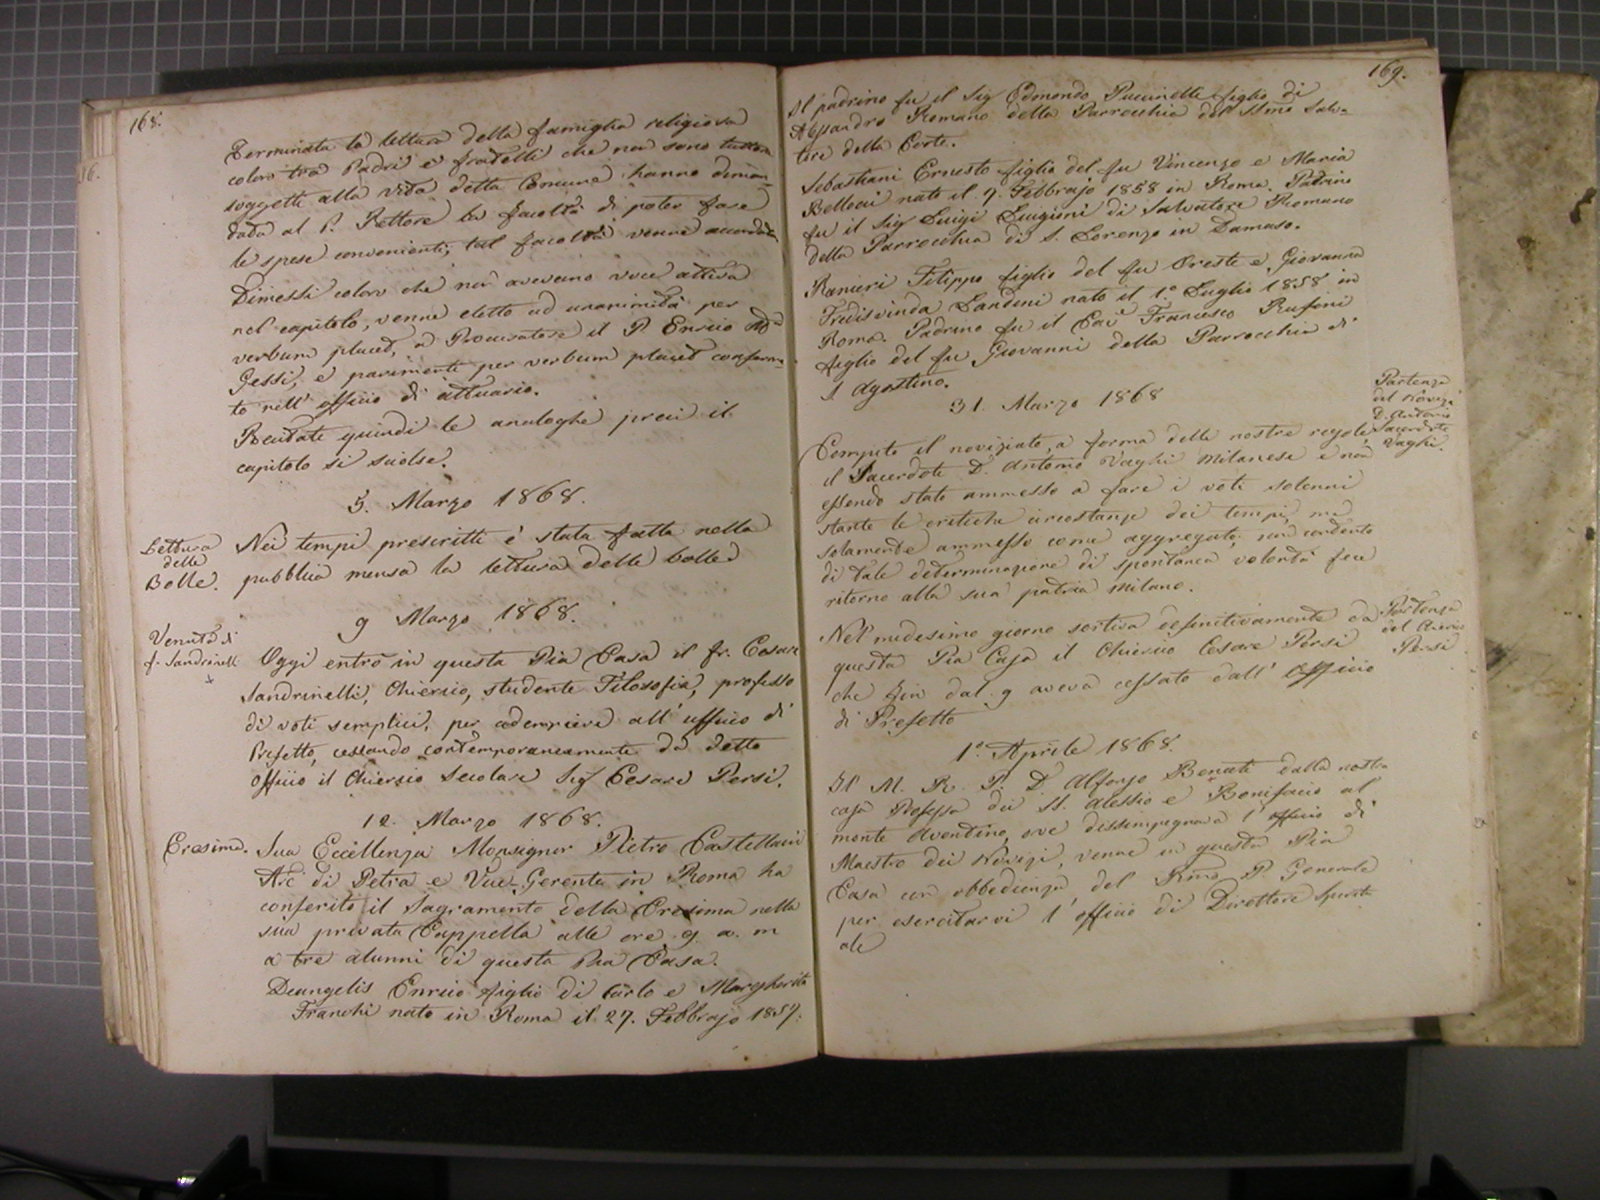 168.
Terminata la lettura della famiglia religiosa
coloro tra Padri e fratelli che non sono tuttora
soggetti alla vita detta Comune hanno diman-
data al P. Rettore la facoltà di poter fare
le spese convenienti; tal facoltà venne accordata
Dimessi coloro che non avevano voce attiva
nel capitolo, venne eletto ad unanimità per
verbum placet, a Procuratore il P. Enrico
Gessi, e parimenti per verbum placet conferma-
to nell'officio di attuario.
Recitate quindi le analoghe preci il
capitolo si sciolse.
5. Marzo 1868.
Lettura
delle
Bolle.
Nei tempi prescritti è stata fatta nella
pubblica mensa la lettura delle bolle
9 Marzo 1868.
Venuta di
f. Sandrinelli
Oggi entrò in questa Pia Casa il fr. Cesare
Sandrinelli, Chierico, studente Filosofia, professo
di voti semplici, per adempiere all'ufficio di
Prefetto, cessando contemporaneamente da detto
officio il Chierico Secolare Sig Cesare Persi.
12. Marzo 1868.
Cresima.
Sua Eccellenza Monsignor Pietro Castellacci
Arc di Petra e Vice-Gerente in Roma ha
conferito il Sagramento della Cresima nella
sua privata Cappella alle ore 9. a. m
a tre alunni di questa Pia Casa.
Deangelis Enrico figlio di Carlo e Margherita
Franchi nato in Roma il 27. Febbrajo 1857.
169.
Il padrino fu il Sig Edmondo Puccinelli figlio di
Alessandro Romano della Parrocchia del SSmo Salva-
tore della Corte.
Sebastiani Ernesto figlio del fu Vincenzo e Maria
Bellocci nato il 7. Febbrajo 1858 in Roma. Padrino
fu il Sig Luigi Luigioni di Salvatore Romano
della Parrocchia di S. Lorenzo in Damaso.
Ranieri Filippo figlio del fu Oreste e Giovanna
Fredisvinda Landini nato il 1.º Luglio 1858 in
Roma. Padrino fu il Cav Francesco Rufini
figlio del fu Giovanni della Parrocchia di
S Agostino.
31. Marzo 1868
Partenza
del Novizio
D. Antonio
Sacerdote
Vaghi.
Compito il noviziato, a forma delle nostre regole,
il Sacerdote D. Antonio Vaghi Milanese e non
essendo stato ammesso a fare i voti solenni
stante le critiche circostanze dei tempi, ma
solamente ammesso come aggregato, non contento
di tale determinazione di spontanea volontà fece
ritorno alla sua patria Milano.
Partenza
del Chierico
Persi
Nel medesimo giorno sortiva definitivamente da
questa Pia Casa il Chierico Cesare Persi
che fin dal 9 aveva cessato dall'Officio
di Prefetto
1.º Aprile 1868.
Il M. R. P. D. Alfonso Benati dalla nostra
casa Professa dei SS. Alessio e Bonifacio al
monte Aventino, ove dissimpegnava l'officio di
Maestro dei Novizi, venne in questa Pia
Casa con obbedienza del Rmo P. Generale
per esercitarvi l'officio di Direttore Spiritu
ale